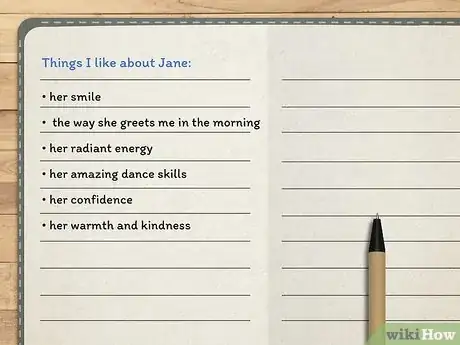 Things I like about Jane:
• her smile
• the way she greets me in the morning
• her radiant energy
• her amazing dance skills
• her confidence
• her warmth and kindness
wikiHow